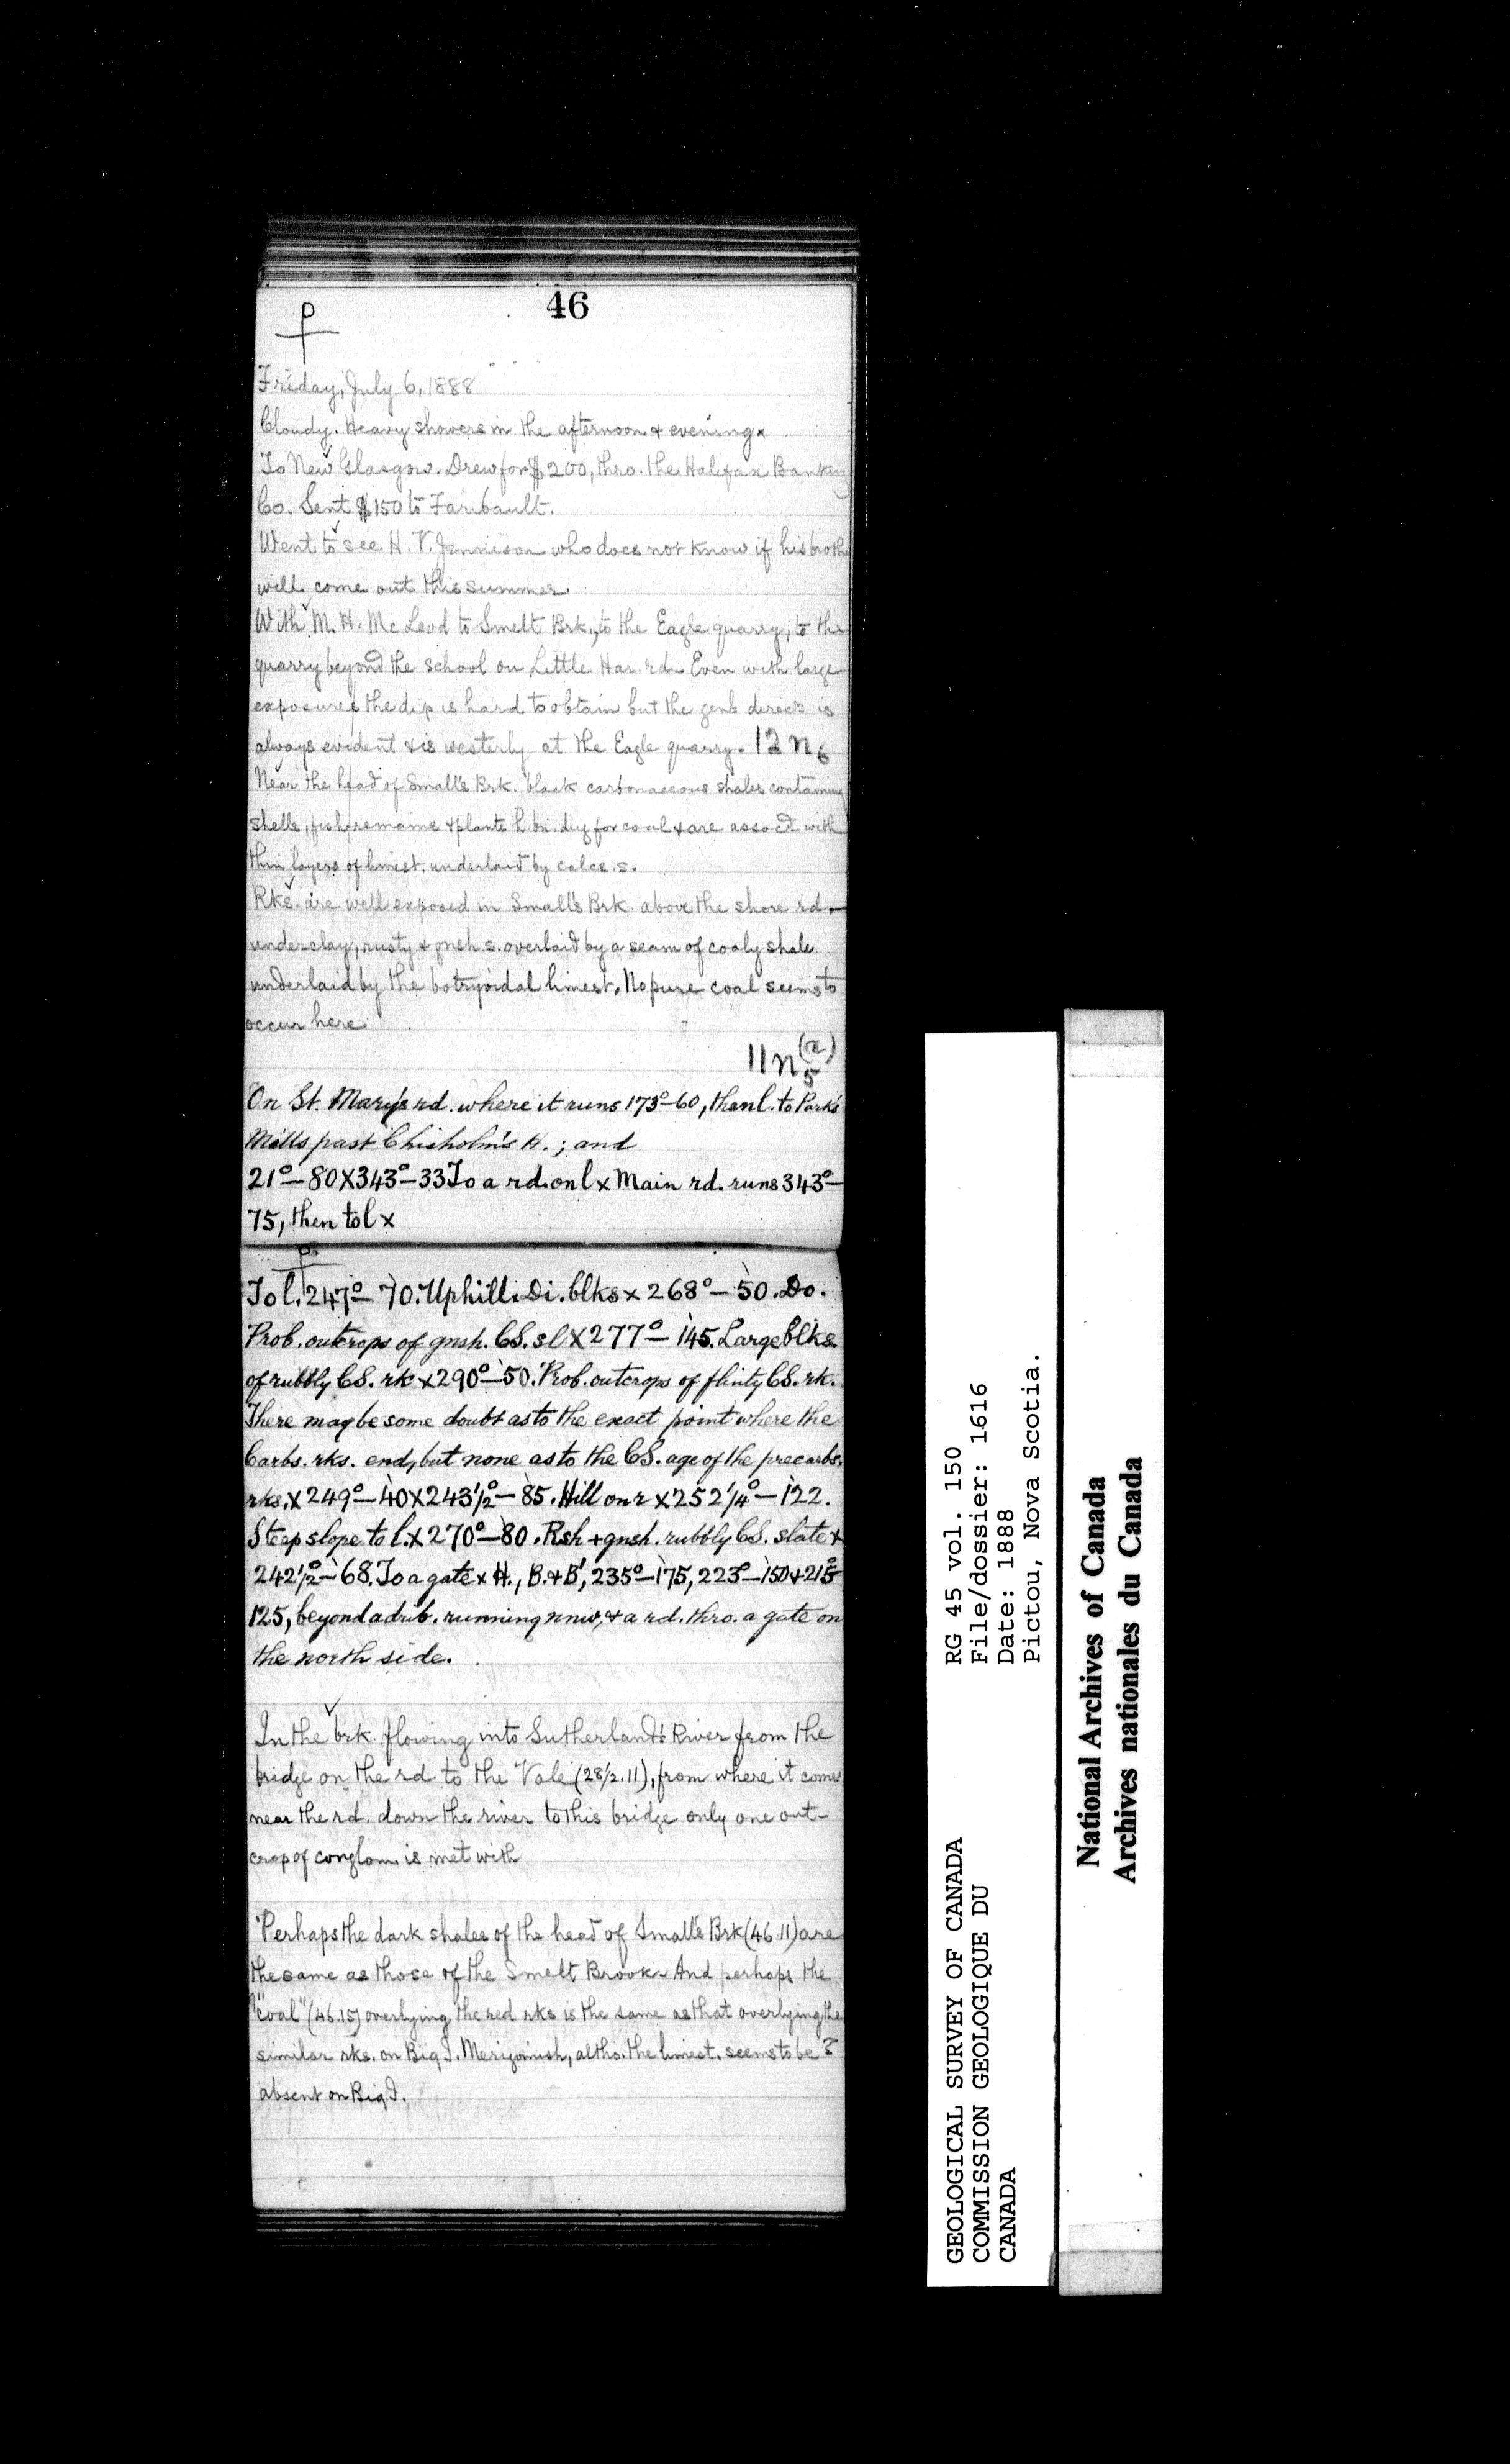 46
Friday, July 6, 1888
Cloudy. Heavy showers in the afternoon & evening x
To New Glasgow. Drew for $200, thro. the Halifax Banking
Co. Sent $150 to Faribault.
Went to see H. V. Jennison who does not know if his brothe
will come out this summer
With M. H. McLeod to Smelt Brk., to the Eagle quarry, to the
quarry beyond the school on Little Har. rd. Even with large
exposures the dip is hard to obtain but the genl. direct. is
always evident & is westerly at the Eagle quarry. 12 n 6
Near the head of Small's Brk. black carbonaceous shales containing
shells, fish-remains & plants h. bn. dug for coal & are assocd with
thin layers of limest. underlaid by calcs. s.
Rks. are well exposed in Small's Brk. above the shore rd.—
underclay, rusty & gnsh s. overlaid by a seam of coaly shale
underlaid by the botryoidal limest. No pure coal seems to
occur here
11 n (a) 5
On St. Mary's rd. where it runs 173°–60, then l. to Park's
Mills past Chisholm's H.; and
21°–80 X 343°–33 To a rd. on l x Main rd. runs 343°–
75, then to l x
To l. 247°–70. Uphill. Di. blks x 268°–50. Do.
Prob. outcrops of gnsh. CS. sl. X 277°–145. Large blks.
of rubbly CS. rk x 290°–50. Prob. outcrops of flinty CS. rk.
There may be some doubt as to the exact point where the
Carbs. rks. end, but none as to the CS. age of the precarbs.
rks. X 249°–40 X 243½°–85. Hill on r X 252¼°–122.
Steep slope to l. X 270°–80. Rsh + gnsh. rubbly CS. slate x
242½°–68. To a gate x H., B. & B', 235°–175, 223°–150 & 215°
125, beyond a drib. running nnw, & a rd. thro. a gate on
the north side.
In the brk. flowing into Sutherland's River from the
bridge on the rd. to the Vale (28½.11), from where it comes
near the rd. down the river to this bridge only one out-
crop of conglom. is met with
Perhaps the dark shales of the head of Small's Brk (46.11) are
the same as those of the Smelt Brook. And perhaps the
"coal" (46.15) overlying the red rks is the same as that overlying the
similar rks. on Big I. Merigomish, altho. the limest. seems to be ?
absent on Big I.
GEOLOGICAL SURVEY OF CANADA
COMMISSION GEOLOGIQUE DU
CANADA
RG 45 vol. 150
File/dossier: 1616
Date: 1888
Pictou, Nova Scotia.
National Archives of Canada
Archives nationales du Canada